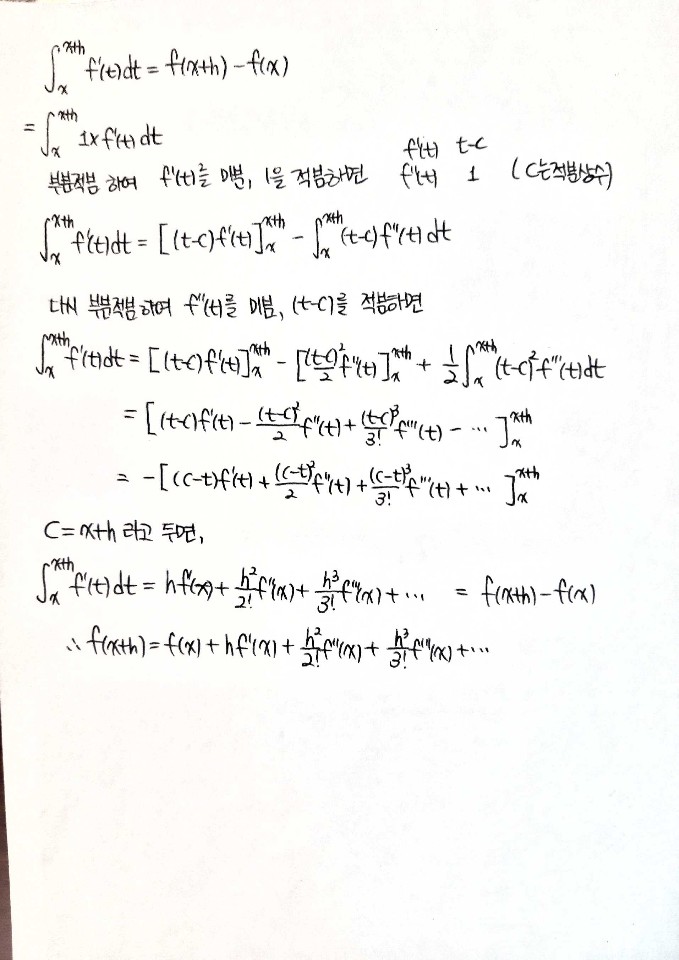 ∫ₓˣ⁺ʰ f'(t)dt = f(x+h) - f(x)
= ∫ₓˣ⁺ʰ 1×f'(t) dt
f'(t) t-c
부분적분 하여 f'(t)를 미분, 1을 적분하면 f''(t) 1 (C는 적분상수)
∫ₓˣ⁺ʰ f'(t)dt = [(t-c)f'(t)]ₓˣ⁺ʰ - ∫ₓˣ⁺ʰ (t-c)f''(t) dt
다시 부분적분 하여 f''(t)를 미분, (t-c)를 적분하면
∫ₓˣ⁺ʰ f'(t)dt = [(t-c)f'(t)]ₓˣ⁺ʰ - [(t-c)²/2 f''(t)]ₓˣ⁺ʰ + 1/2 ∫ₓˣ⁺ʰ (t-c)² f'''(t)dt
= [(t-c)f'(t) - (t-c)²/2 f''(t) + (t-c)³/3! f'''(t) - ⋯ ]ₓˣ⁺ʰ
= -[(c-t)f'(t) + (c-t)²/2 f''(t) + (c-t)³/3! f'''(t) + ⋯ ]ₓˣ⁺ʰ
C = x+h 라고 두면,
∫ₓˣ⁺ʰ f'(t)dt = hf'(x) + h²/2! f''(x) + h³/3! f'''(x) + ⋯ = f(x+h) - f(x)
∴ f(x+h) = f(x) + hf'(x) + h²/2! f''(x) + h³/3! f'''(x) + ⋯